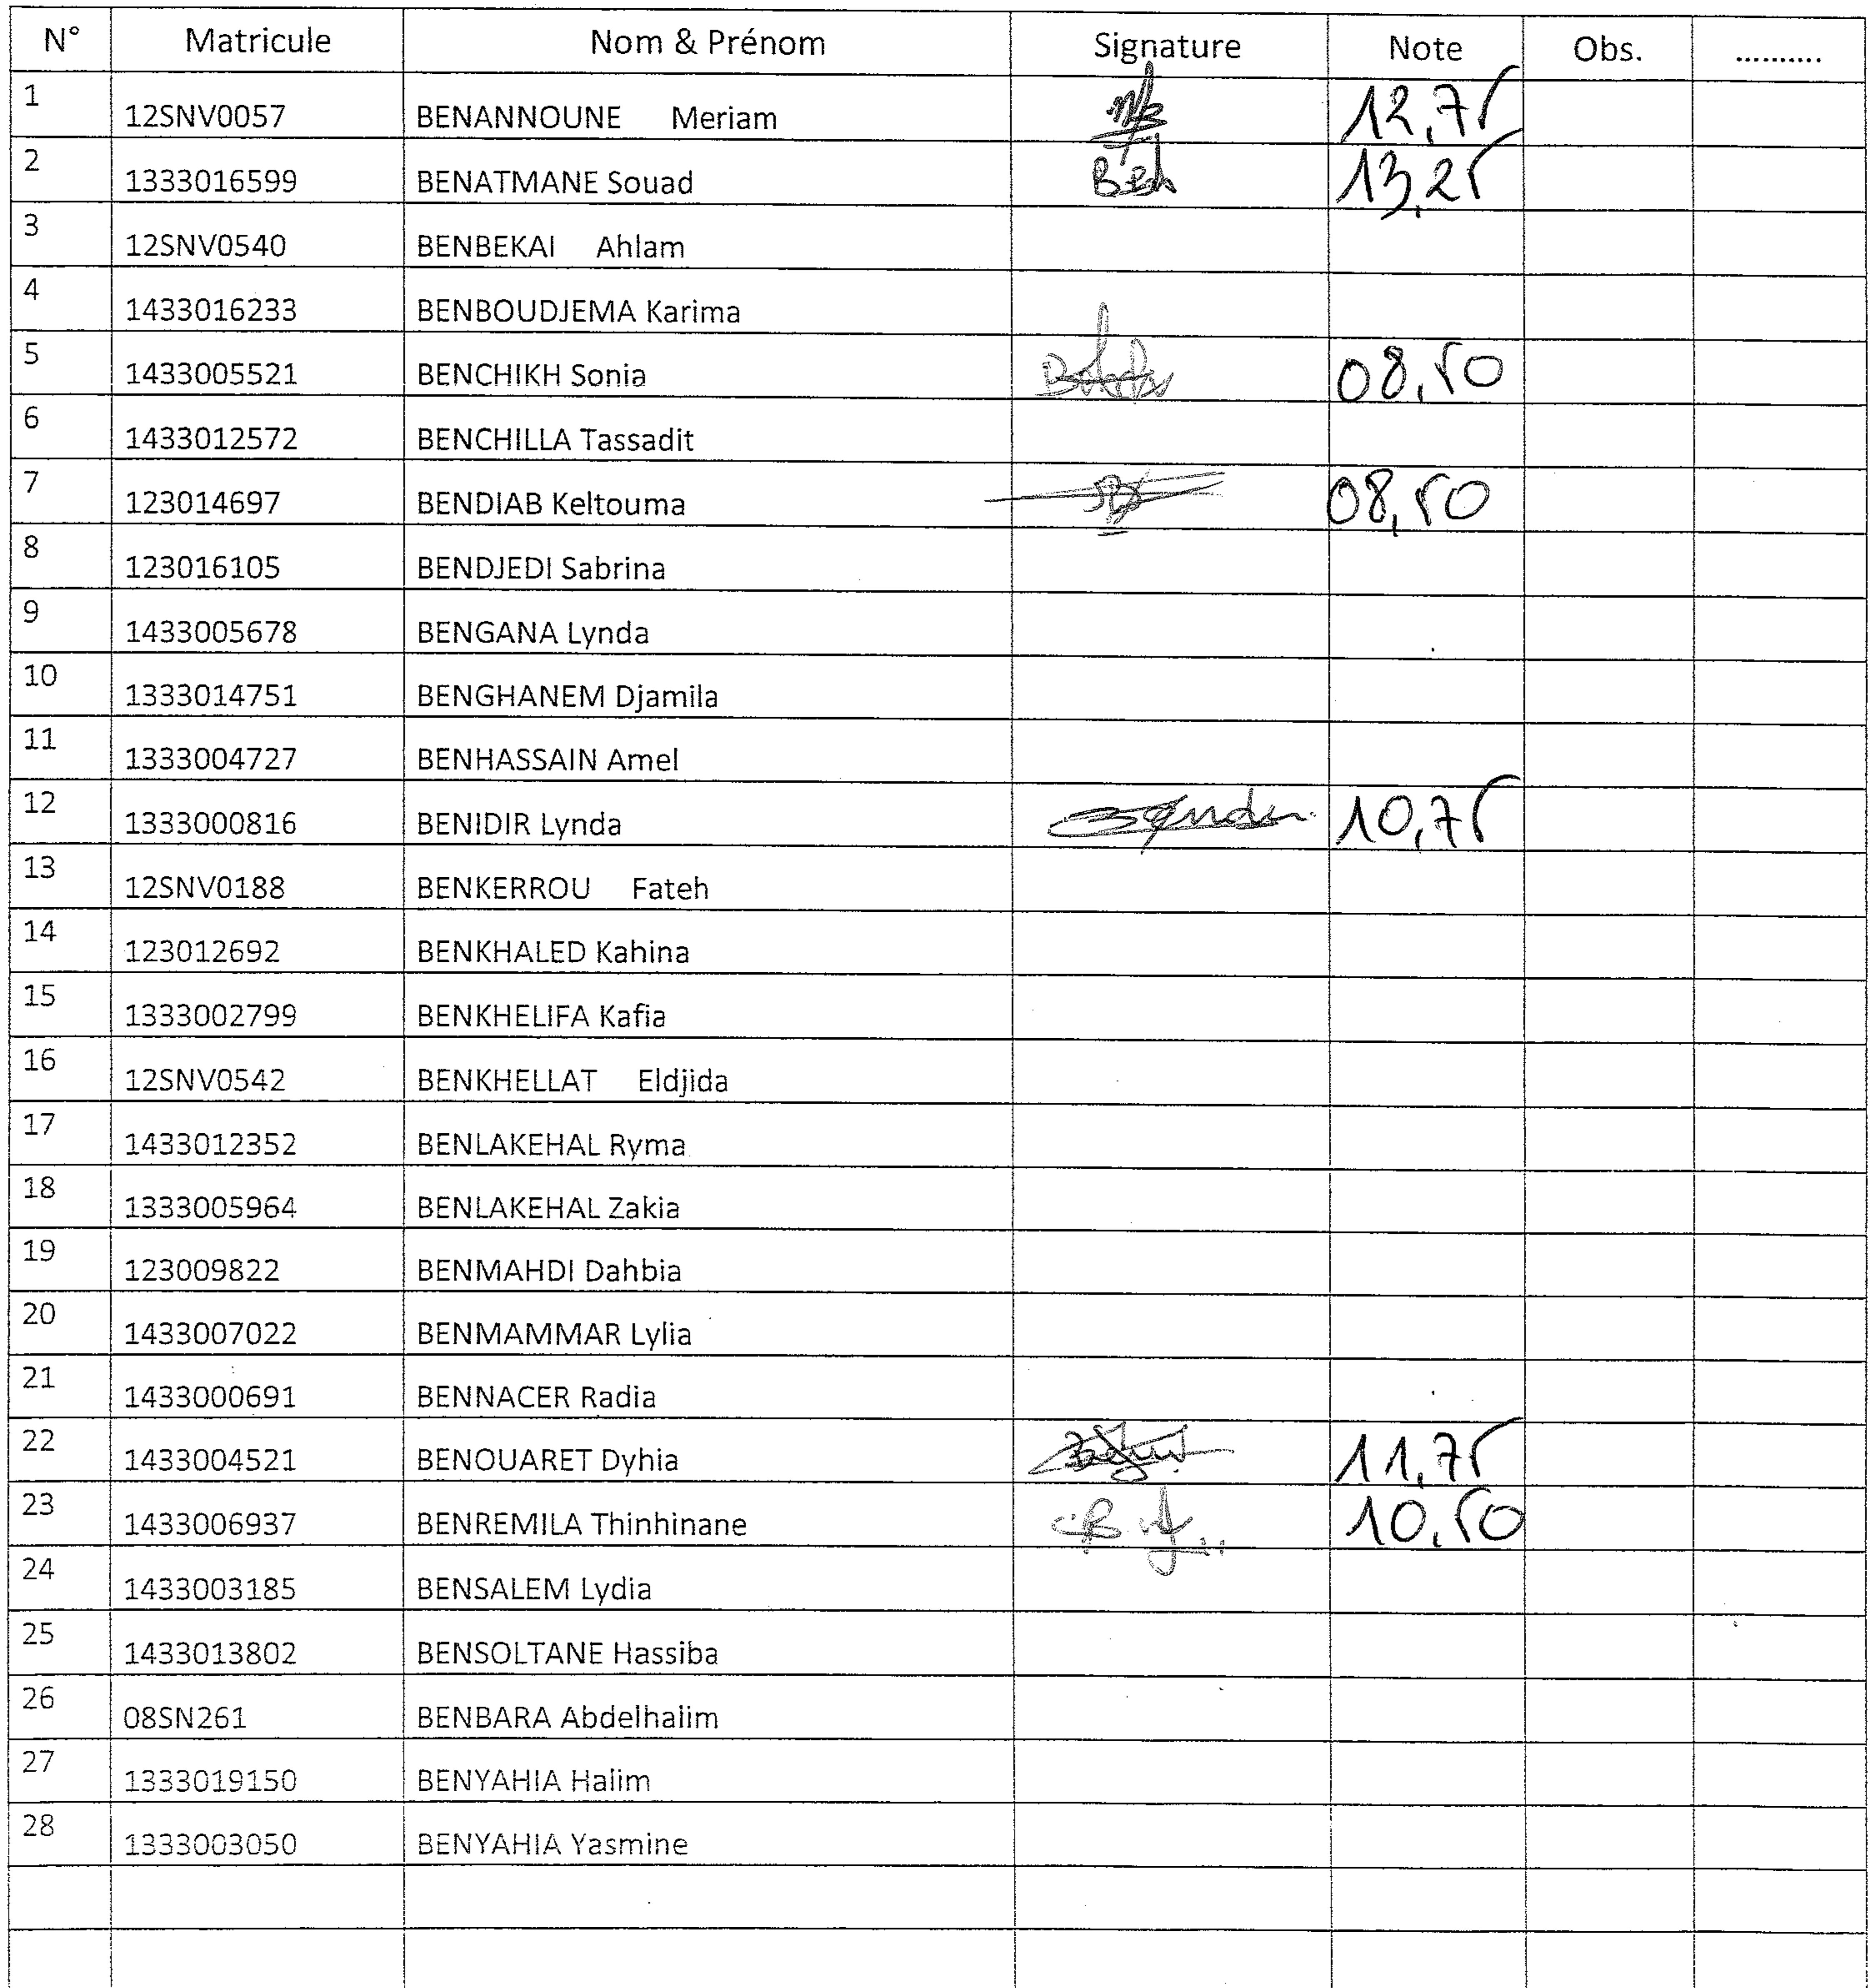 N° Matricule Nom & Prénom Signature Note Obs. ..........
1 12SNV0057 BENANNOUNE Meriam 12,75
2 1333016599 BENATMANE Souad 13,25
3 12SNV0540 BENBEKAI Ahlam
4 1433016233 BENBOUDJEMA Karima
5 1433005521 BENCHIKH Sonia 08,50
6 1433012572 BENCHILLA Tassadit
7 123014697 BENDIAB Keltouma 08,50
8 123016105 BENDJEDI Sabrina
9 1433005678 BENGANA Lynda
10 1333014751 BENGHANEM Djamila
11 1333004727 BENHASSAIN Amel
12 1333000816 BENIDIR Lynda 10,75
13 12SNV0188 BENKERROU Fateh
14 123012692 BENKHALED Kahina
15 1333002799 BENKHELIFA Kafia
16 12SNV0542 BENKHELLAT Eldjida
17 1433012352 BENLAKEHAL Ryma
18 1333005964 BENLAKEHAL Zakia
19 123009822 BENMAHDI Dahbia
20 1433007022 BENMAMMAR Lylia
21 1433000691 BENNACER Radia
22 1433004521 BENOUARET Dyhia 11,75
23 1433006937 BENREMILA Thinhinane 10,50
24 1433003185 BENSALEM Lydia
25 1433013802 BENSOLTANE Hassiba
26 08SN261 BENBARA Abdelhalim
27 1333019150 BENYAHIA Halim
28 1333003050 BENYAHIA Yasmine